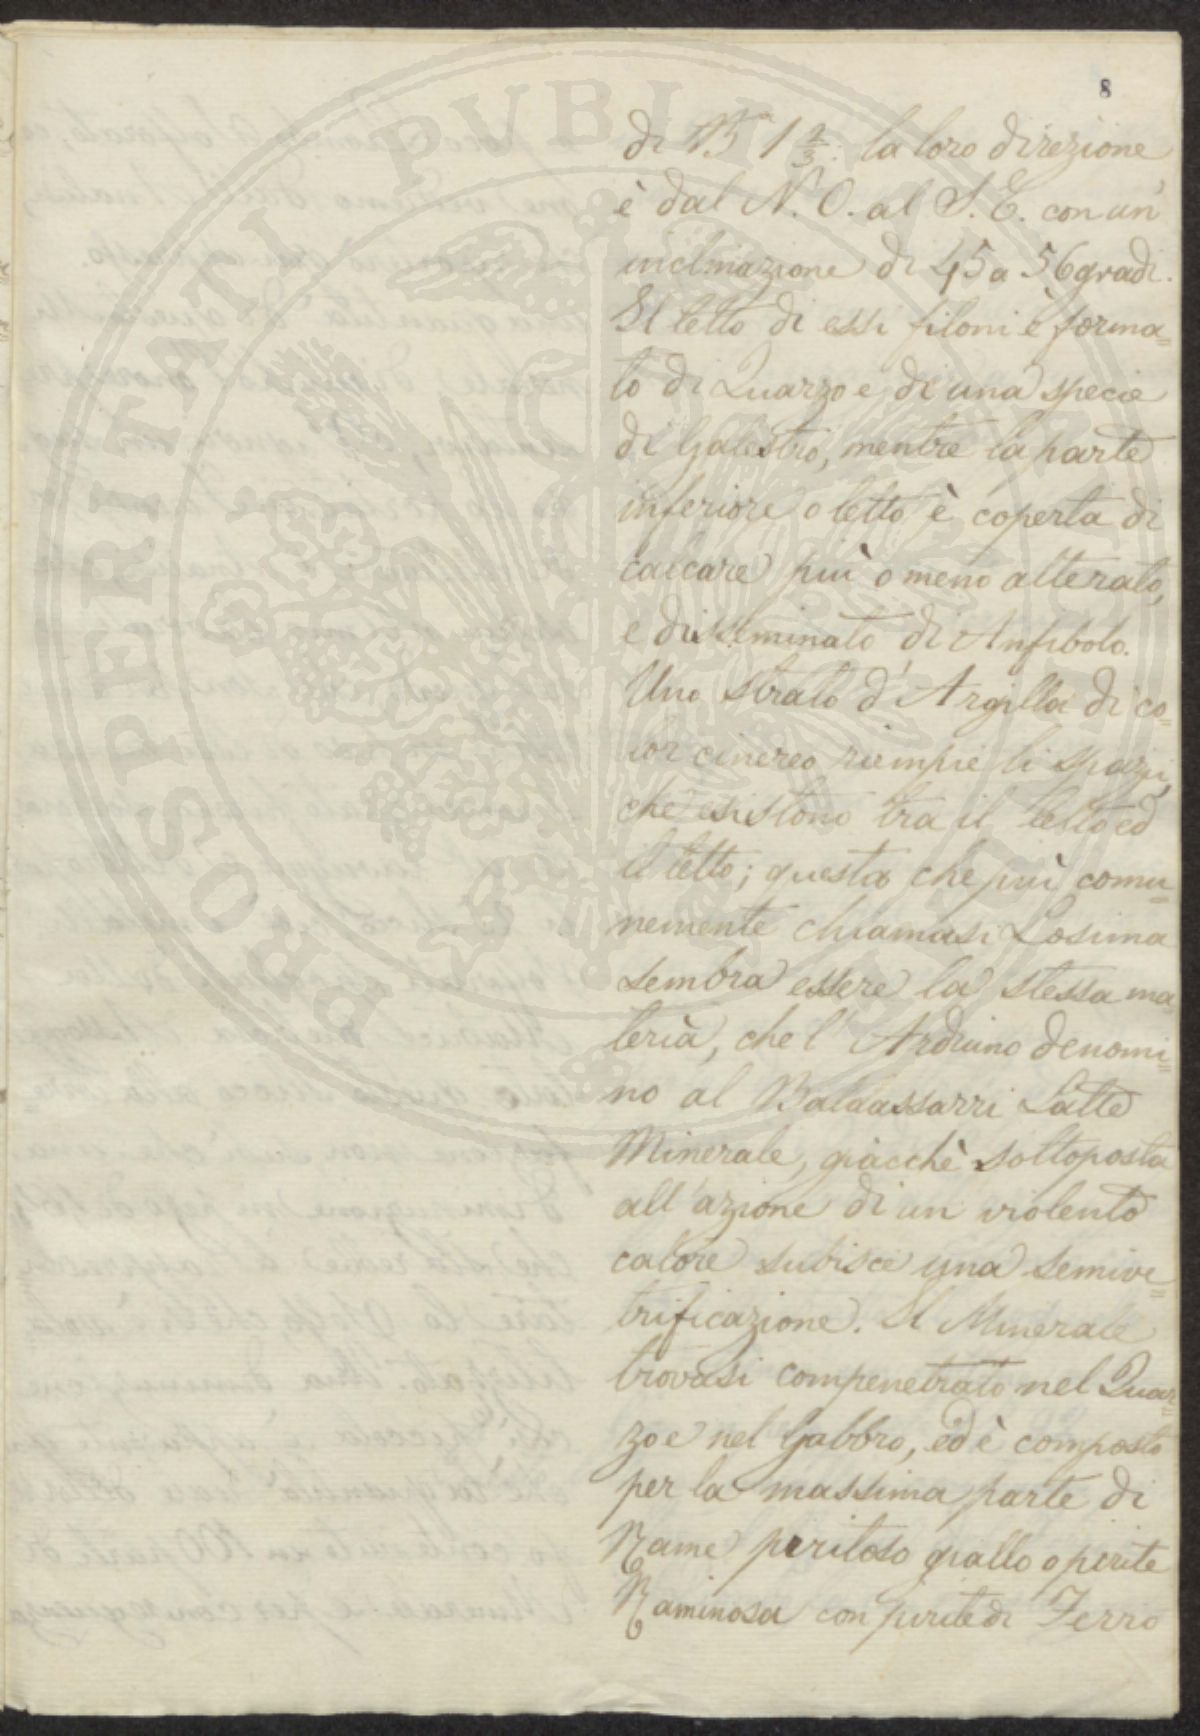 8
di B.ª 1 2/3: la loro direzione
è dal N. O. al S. E. con un'
inclinazione di 45 a 56 gradi.
Il tetto di essi filoni è forma=
to di Quarzo e di una specie
di Galestro, mentre la parte
inferiore o letto è coperta di
calcare più o meno alterato,
e disseminato di Anfibolo.
Uno strato d'Argilla di co=
lor cinereo riempie li spazj,
che esistono tra il tetto ed
il letto; questa che più comu=
nemente chiamasi Losima
sembra essere la stessa ma=
teria, che l'Arduino denomi=
no al Baldassarri Latte
Minerale, giacchè sottoposta
all'azione di un violento
calore subisce una semive=
trificazione. Il Minerale
trovasi compenetrato nel Quar=
zo e nel Gabbro, ed è composto
per la massima parte di
Rame piritoso giallo o pirite
Raminosa con pirite di Ferro
PROSPERITATI PUBLI